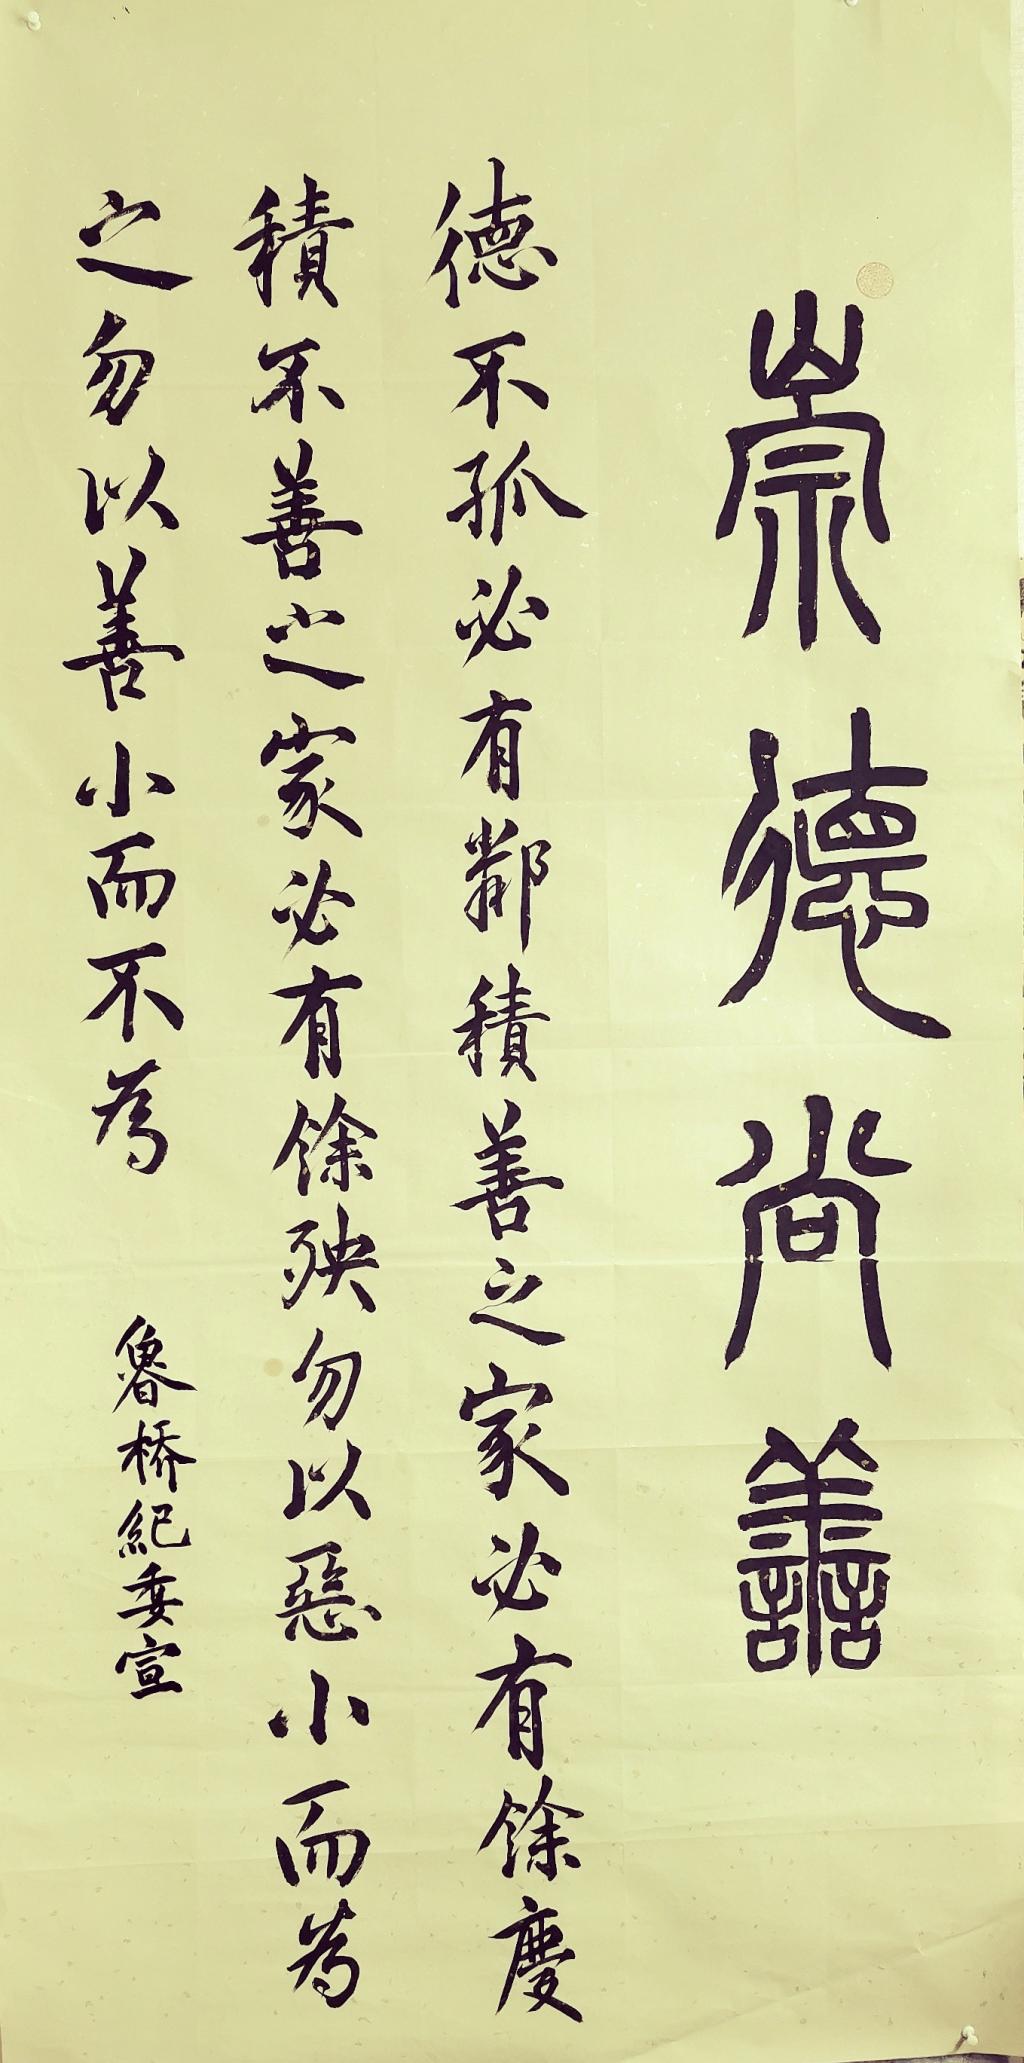 崇德尚善
德不孤必有鄰積善之家必有餘慶
積不善之家必有餘殃勿以惡小而為
之勿以善小而不為
魯橋紀委宣